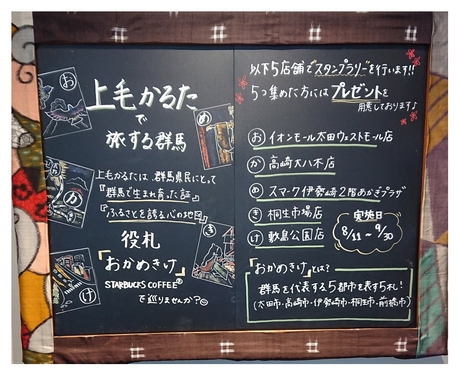 上毛かるた
で
旅する群馬
上毛かるたは、群馬県民にとって
『群馬で生まれ育った証』
『ふるさとを誇る心の地図』
役札
「おかめきけ」
STARBUCKS COFFEE®
で巡りませんか?☺
お
め
か
き
け
以下5店舗でスタンプラリーを行います!!
5つ集めた方にはプレゼントを
用意しております♪
お イオンモール太田ウェストモール店
か 高崎大八木店
め スマーク伊勢崎2階あかぎプラザ
き 桐生市場店
け 敷島公園店
実施日
8/11~9/30
「おかめきけ」とは?
群馬を代表する5都市を表す5札!
(太田市・高崎市・伊勢崎市・桐生市・前橋市)